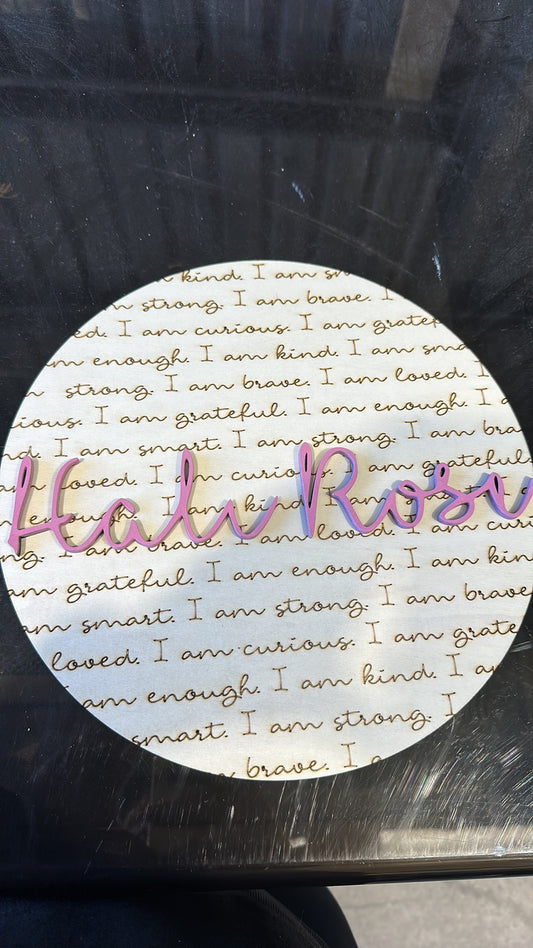 kind. I am sm
strong. I am brave. I
ed. I am curious. I am gratef
am enough. I am kind. I am sma
strong. I am brave. I am loved. I
ious. I am grateful. I am enough. I a
nd. I am smart. I am strong. I am bra
am loved. I am curious. I am grateful.
Hali Rose
I am brave. I am loved. I am curious.
am grateful. I am enough. I am kin
am smart. I am strong. I am brave
loved. I am curious. I am grate
am enough. I am kind. I am
smart. I am strong. I
brave. I a